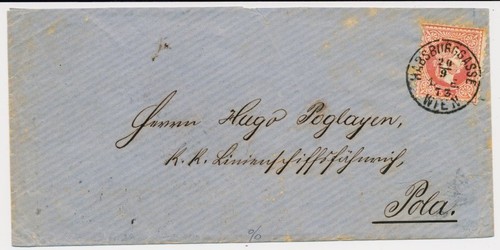 HABSBURGGASSE
20
9
73
WIEN
Herrn Hugo Poglayen,
K. K. Linienschiffsfähnrich,
Pola.
%